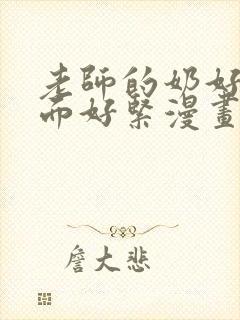 老師的奶好
而好緊漫畫
詹大悲